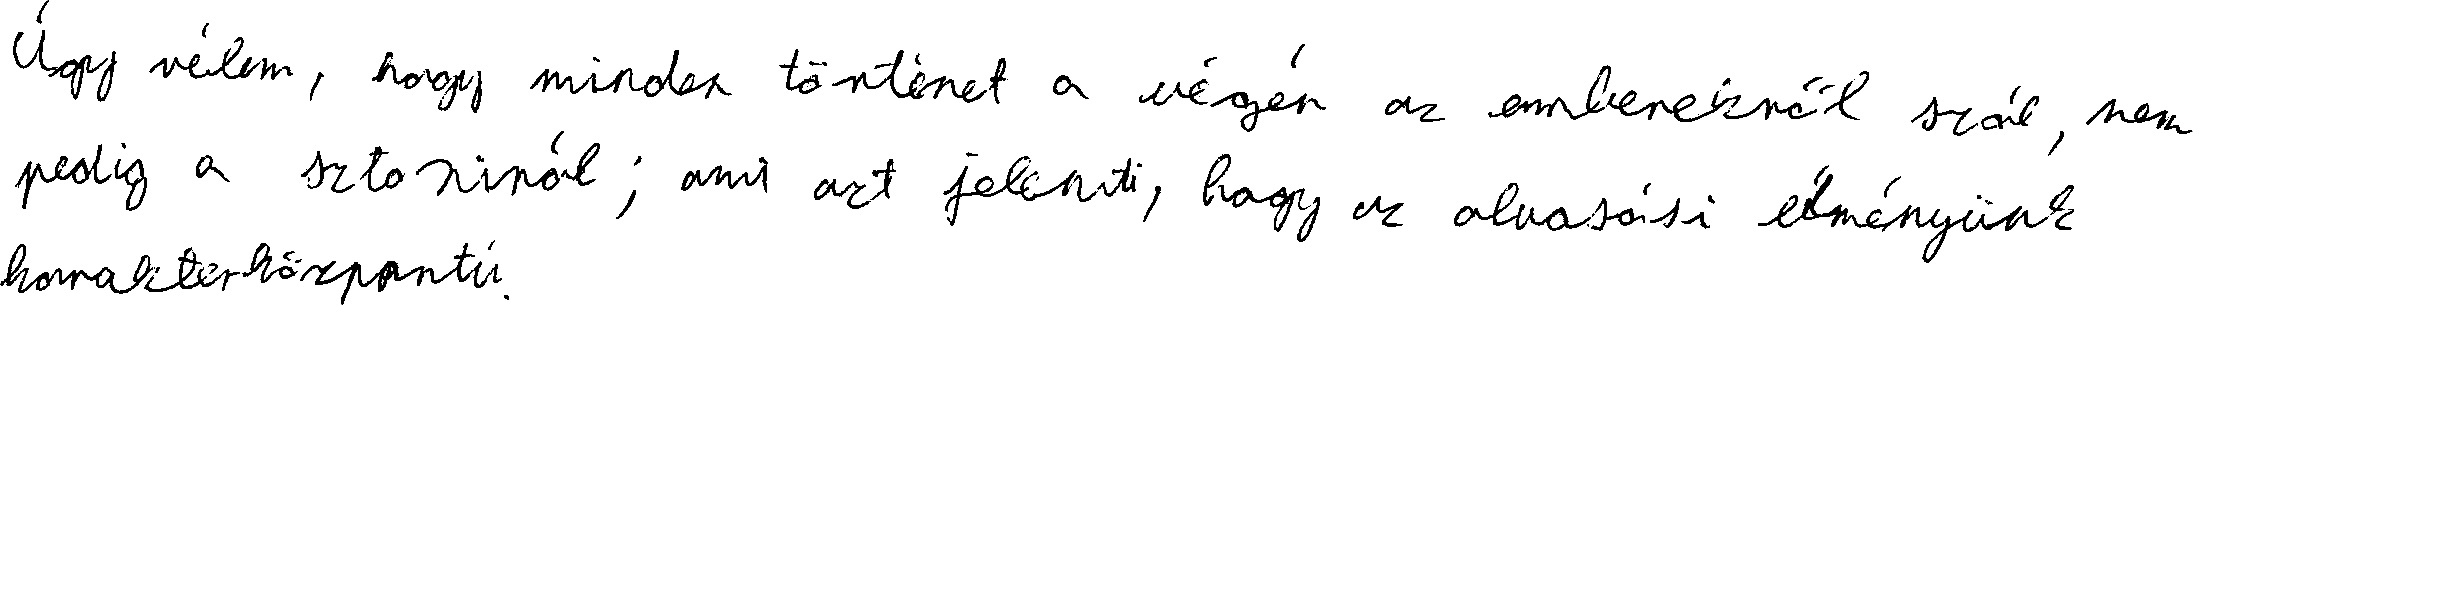 Úgy vélem, hogy minden történet a végén az emberekről szól, nem
pedig a sztoriról; ami azt jelenti, hogy az olvasási élményünk
karakterközpontú.